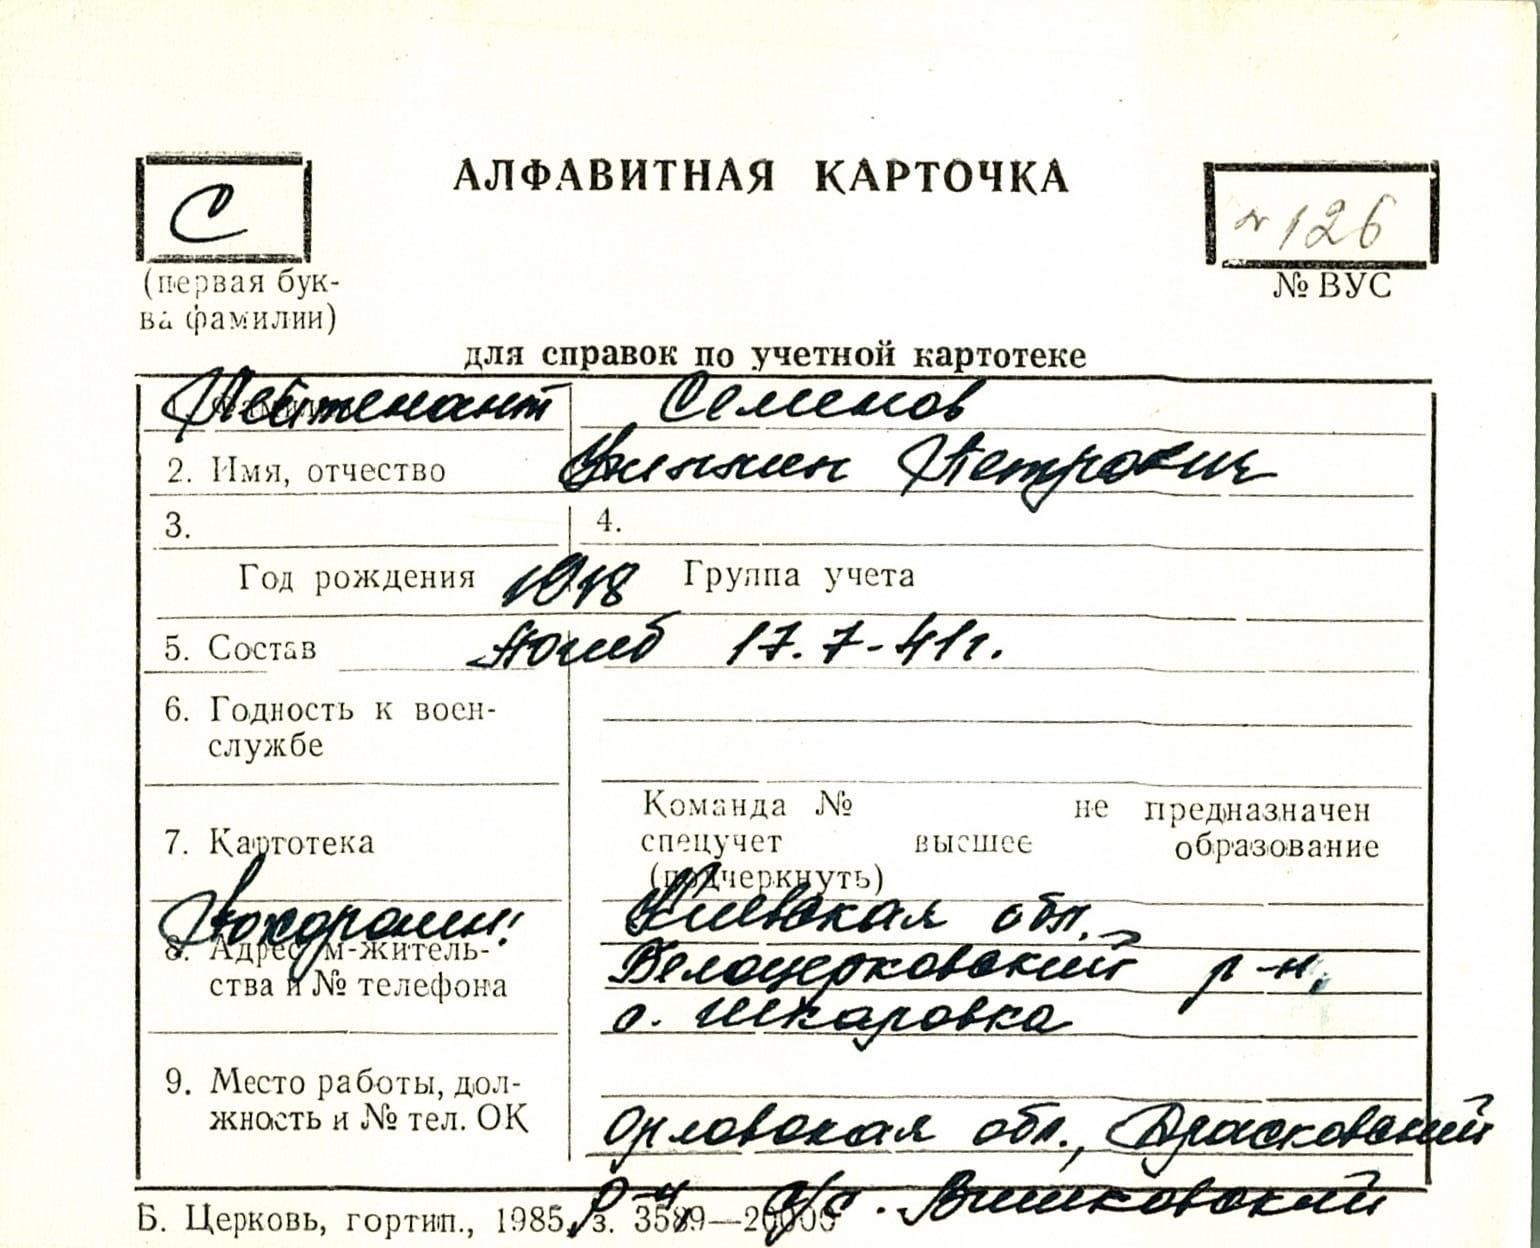 АЛФАВИТНАЯ КАРТОЧКА
С
№ 126
(первая бук-
ва фамилии)
№ ВУС
для справок по учетной картотеке
Лейтенант Семенов
2. Имя, отчество Петрович
3. 4.
Год рождения 1918 Группа учета
5. Состав Погиб 17.7-41г.
6. Годность к воен-
службе
7. Картотека
Команда № не предназначен
спецучет высшее образование
(подчеркнуть)
Похоронен: Киевская обл.
8. Адрес м-житель-
ства и № телефона
Белоцерковский р-н,
с. Шкаровка
9. Место работы, дол-
жность и № тел. ОК
Орловская обл.,
р-н, с/с. Вишковский
Б. Церковь, гортип., 1985, з. 3589—20000